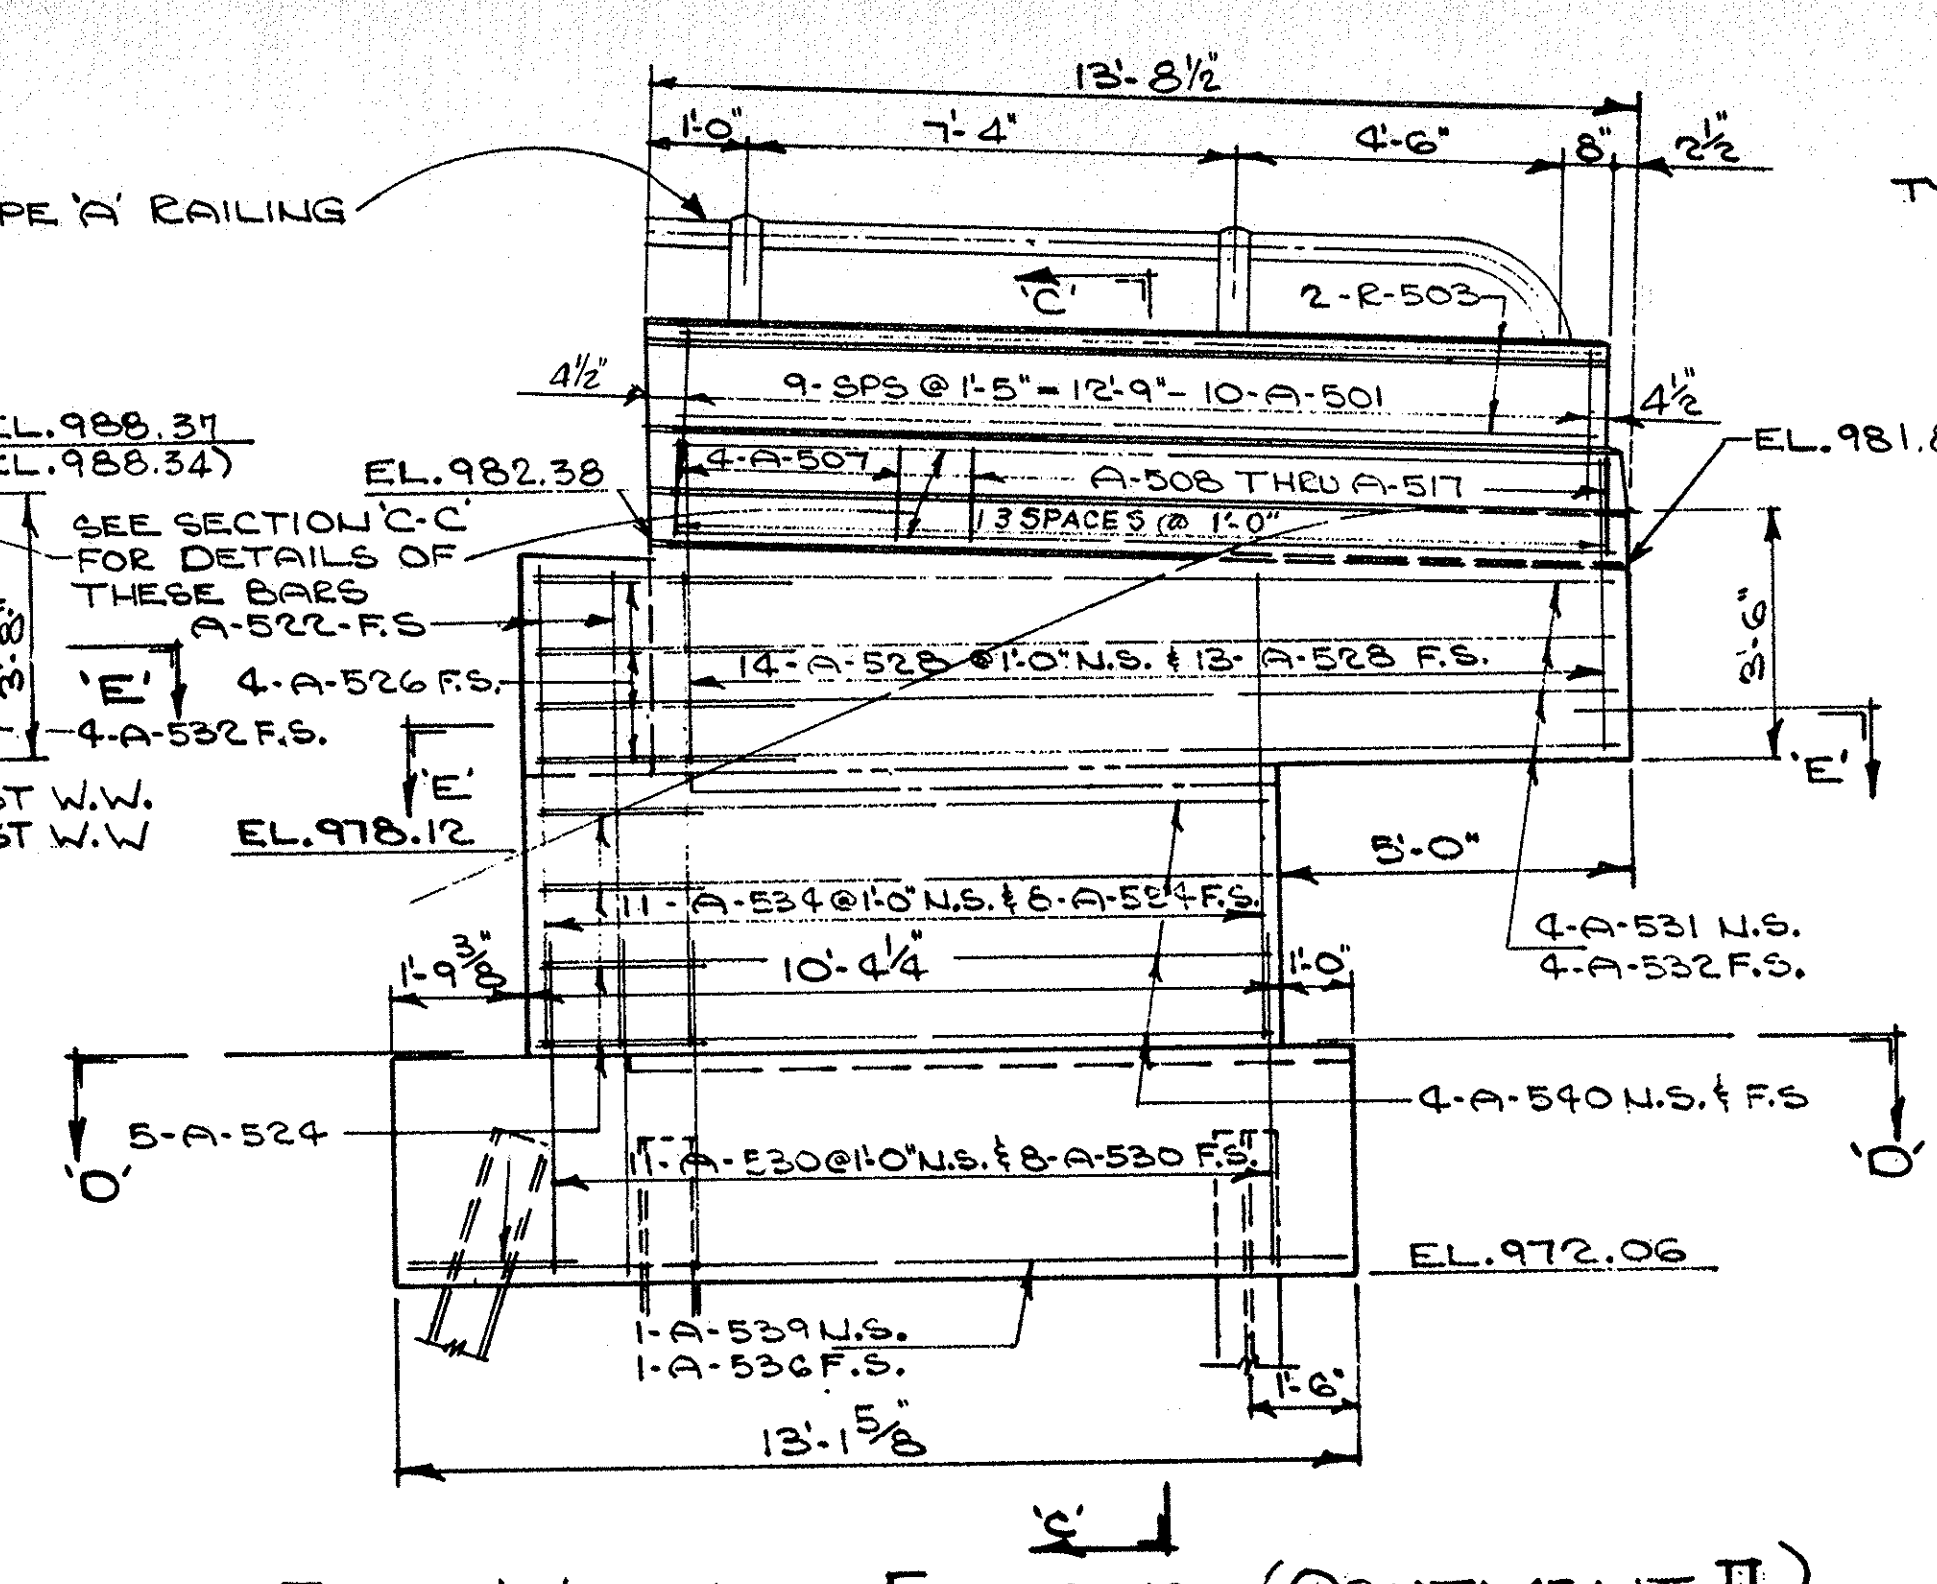 13'-8½"
1'-0"
7'-4"
4'-6"
8"
2½"
'A' RAILING
'C'
2-R-503
4½"
9-SPS @ 1'-5" = 12'-9" - 10-A-501
4½"
EL.988.37
EL.988.34)
EL.982.38
4-A-507
A-508 THRU A-517
13 SPACES @ 1'-0"
SEE SECTION 'C-C'
FOR DETAILS OF
THESE BARS
3'-8"
3'-6"
A-522-F.S
4-A-526 F.S.
14-A-528 @ 1'-0" N.S. & 13-A-528 F.S.
'E'
4-A-532 F.S.
'E'
'E'
W.W.
W.W
EL.978.12
5'-0"
11-A-534 @ 1'-0" N.S. & 8-A-534 F.S.
4-A-531 N.S.
4-A-532 F.S.
1'-9⅜"
10'-4¼"
1'-0"
4-A-540 N.S. & F.S
5-A-524
'D'
'D'
11-A-530 @ 1'-0" N.S. & 8-A-530 F.S.
EL.972.06
1-A-539 N.S.
1-A-536 F.S.
1'-6"
13'-1⅝"
'C'